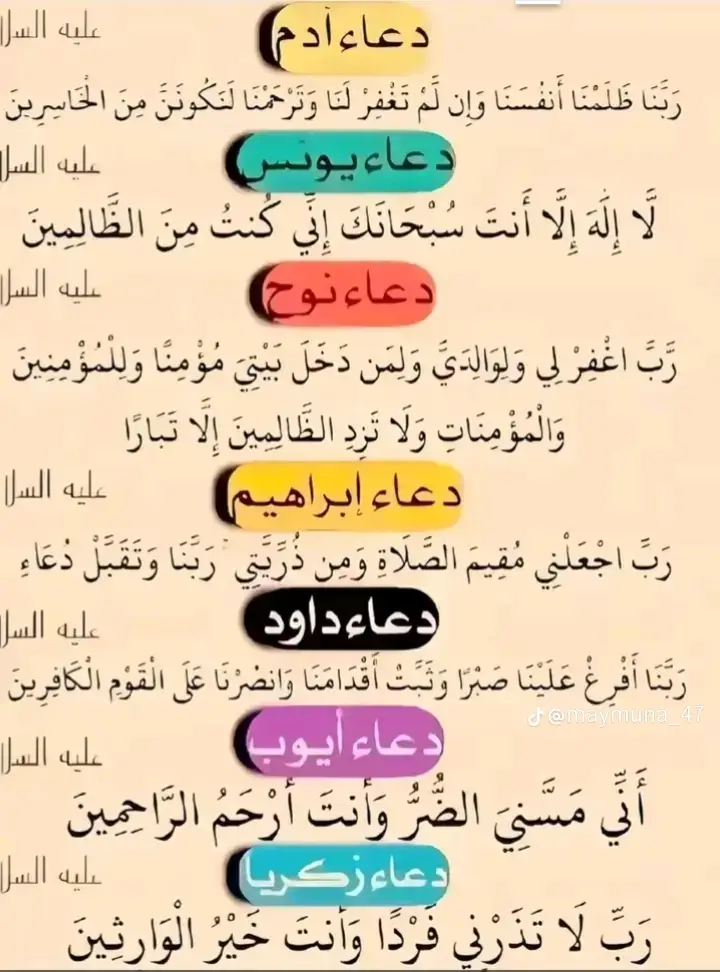 دعاء آدم عليه السلا
رَبَّنَا ظَلَمْنَا أَنفُسَنَا وَإِن لَّمْ تَغْفِرْ لَنَا وَتَرْحَمْنَا لَنَكُونَنَّ مِنَ الْخَاسِرِينَ
دعاء يونس عليه السلا
لَّا إِلَٰهَ إِلَّا أَنتَ سُبْحَانَكَ إِنِّي كُنتُ مِنَ الظَّالِمِينَ
دعاء نوح عليه السلا
رَّبِّ اغْفِرْ لِي وَلِوَالِدَيَّ وَلِمَن دَخَلَ بَيْتِيَ مُؤْمِنًا وَلِلْمُؤْمِنِينَ
وَالْمُؤْمِنَاتِ وَلَا تَزِدِ الظَّالِمِينَ إِلَّا تَبَارًا
دعاء إبراهيم عليه السلا
رَبِّ اجْعَلْنِي مُقِيمَ الصَّلَاةِ وَمِن ذُرِّيَّتِي ۚ رَبَّنَا وَتَقَبَّلْ دُعَاءِ
دعاء داود عليه السلا
رَبَّنَا أَفْرِغْ عَلَيْنَا صَبْرًا وَثَبِّتْ أَقْدَامَنَا وَانصُرْنَا عَلَى الْقَوْمِ الْكَافِرِينَ
@maymuna_47
دعاء أيوب عليه السلا
أَنِّي مَسَّنِيَ الضُّرُّ وَأَنتَ أَرْحَمُ الرَّاحِمِينَ
دعاء زكريا عليه السلا
رَبِّ لَا تَذَرْنِي فَرْدًا وَأَنتَ خَيْرُ الْوَارِثِينَ